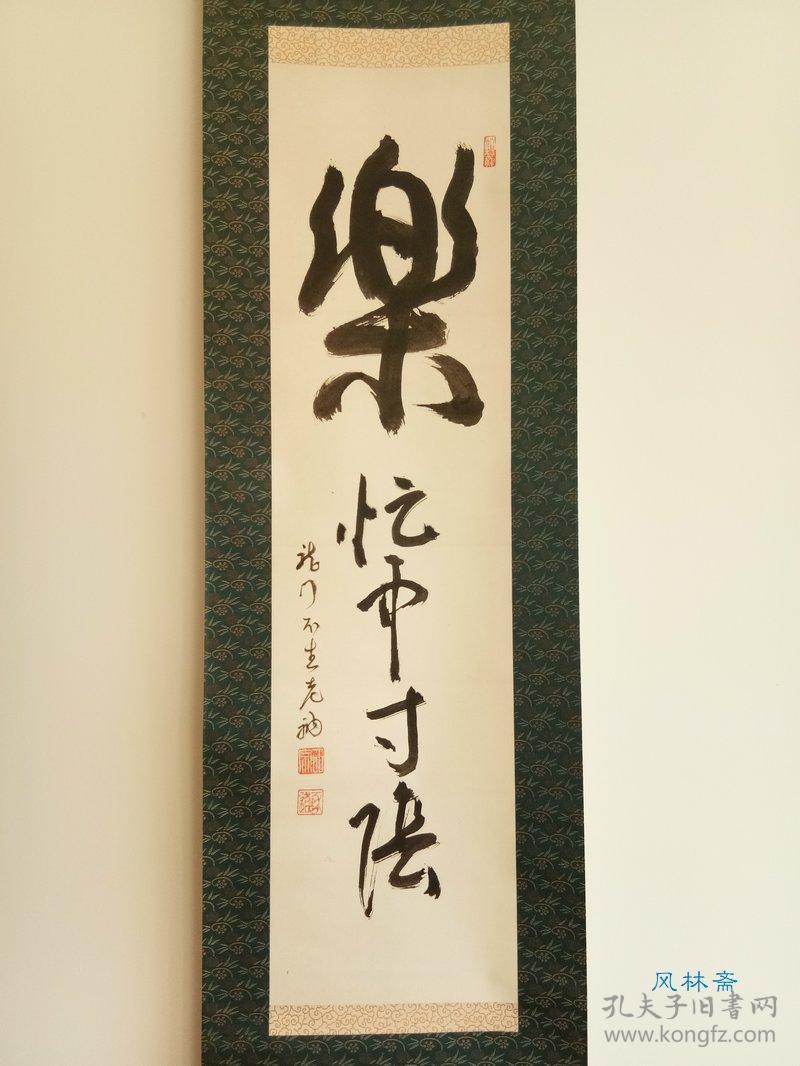 樂
忙中寸陰
龍門不生老衲
风林斋
孔夫子旧書网
www.kongfz.com